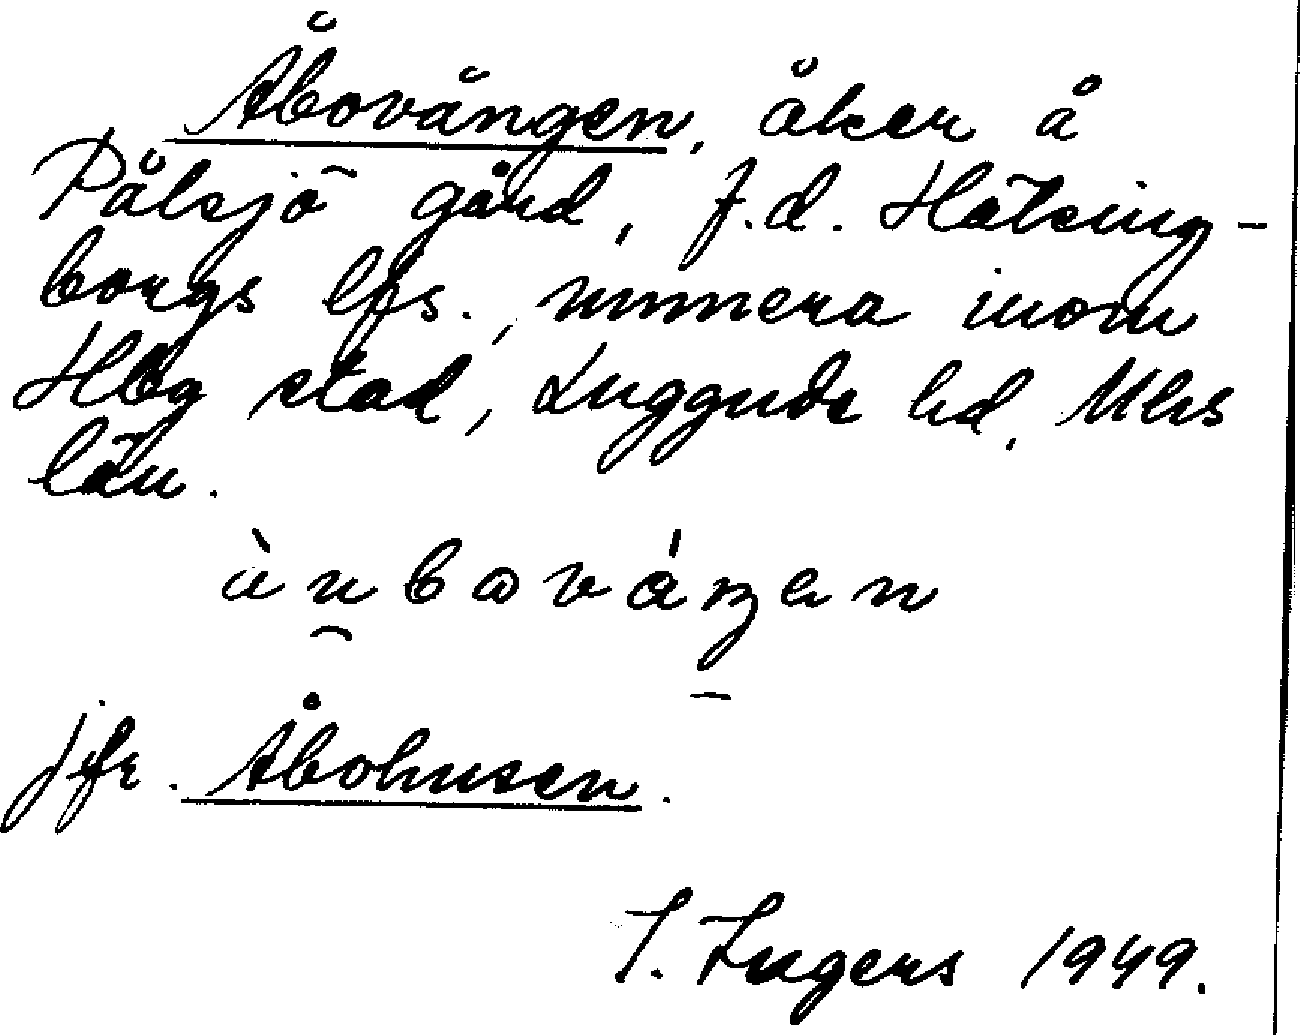 Åbovången, åker å
Pålsjö gård, f.d. Hälsing-
borgs lfs., numera inom
Hbg stad, Luggude hd, Mhs
län.
jfr. Åbohusen.
I. Ingers 1949.